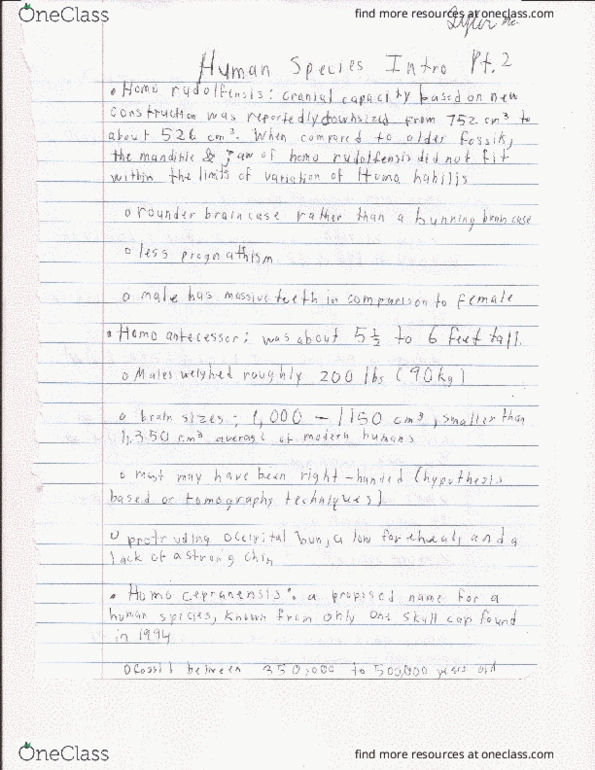 OneClass
find more resources at oneclass.com
Human Species Intro Pt.2
• Homo rudolfensis: cranial capacity based on new
construction was reportedly downsized from 752 cm³ to
about 526 cm³. When compared to older fossils,
the mandible & jaw of homo rudolfensis did not fit
within the limits of variation of Homo habilis
o rounder braincase rather than a braincase
o less prognathism
o male has massive teeth in comparison to female
• Homo antecesser: was about 5 1/2 to 6 feet tall.
o Males weighed roughly 200 lbs (90kg)
o brain sizes: 1,000 – 1150 cm³, smaller than
1,350 cm³ average of modern humans
o most may have been right-handed (hypothesis
based or tomography techniques)
o protruding occipital bun, a low forehead, and a
lack of a strong chin
• Homo cepranensis: a proposed name for a
human species, known from only one skull cap found
in 1994
o fossil between 350,000 to 500,000 years old
OneClass
find more resources at oneclass.com